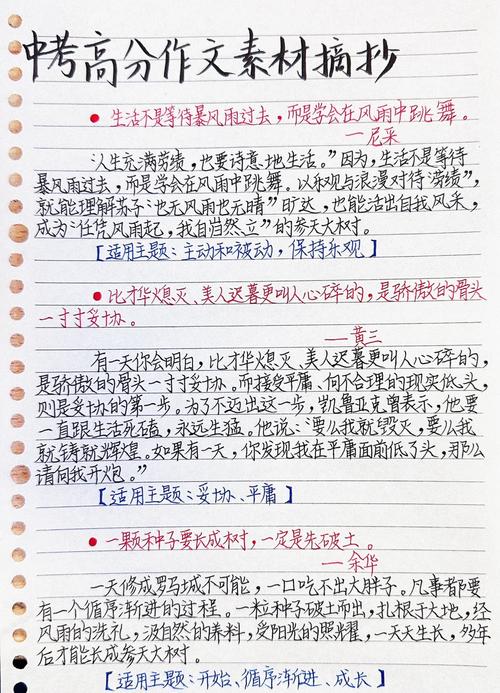 中考高分作文素材摘抄
●生活不是等待暴风雨过去，而是学会在风雨中跳舞。
—尼采
“人生充满劳绩，也要诗意地生活。”因为，生活不是等待
暴风雨过去，而是学会在风雨中跳舞。以乐观与浪漫对待“劳绩”，
就能理解苏子“也无风雨也无晴”旷达，也能活出自我风采，
成为“任凭风雨起，我自岿然立”的参天大树。
【适用主题：主动和被动，保持乐观】
●比才华熄灭、美人迟暮更叫人心碎的，是骄傲的骨头
一寸寸妥协。
—黄三
有一天你会明白，比才华熄灭、美人迟暮更叫人心碎的，
是骄傲的骨头一寸寸妥协。而接受平庸、向不合理的现实低头，
则是妥协的第一步。为了不迈出这一步，凯鲁亚克曾表示，他要
一直跟生活死磕，永远生猛。他说：“要么我就毁灭，要么我
就铸就辉煌。如果有一天，你发现我在平庸面前低了头，那么
请向我开炮。”
【适用主题：妥协、平庸】
●一颗种子要长成树，一定是先破土。
—余华
一天修成罗马城不可能，一口吃不出大胖子。凡事都要
有一个循序渐进的过程。一粒种子破土而出，扎根于大地，经
风雨的洗礼，汲自然的养料，受阳光的照耀，一天天生长，多年
后才能长成参天大树。
【适用主题：开始、循序渐进、成长】